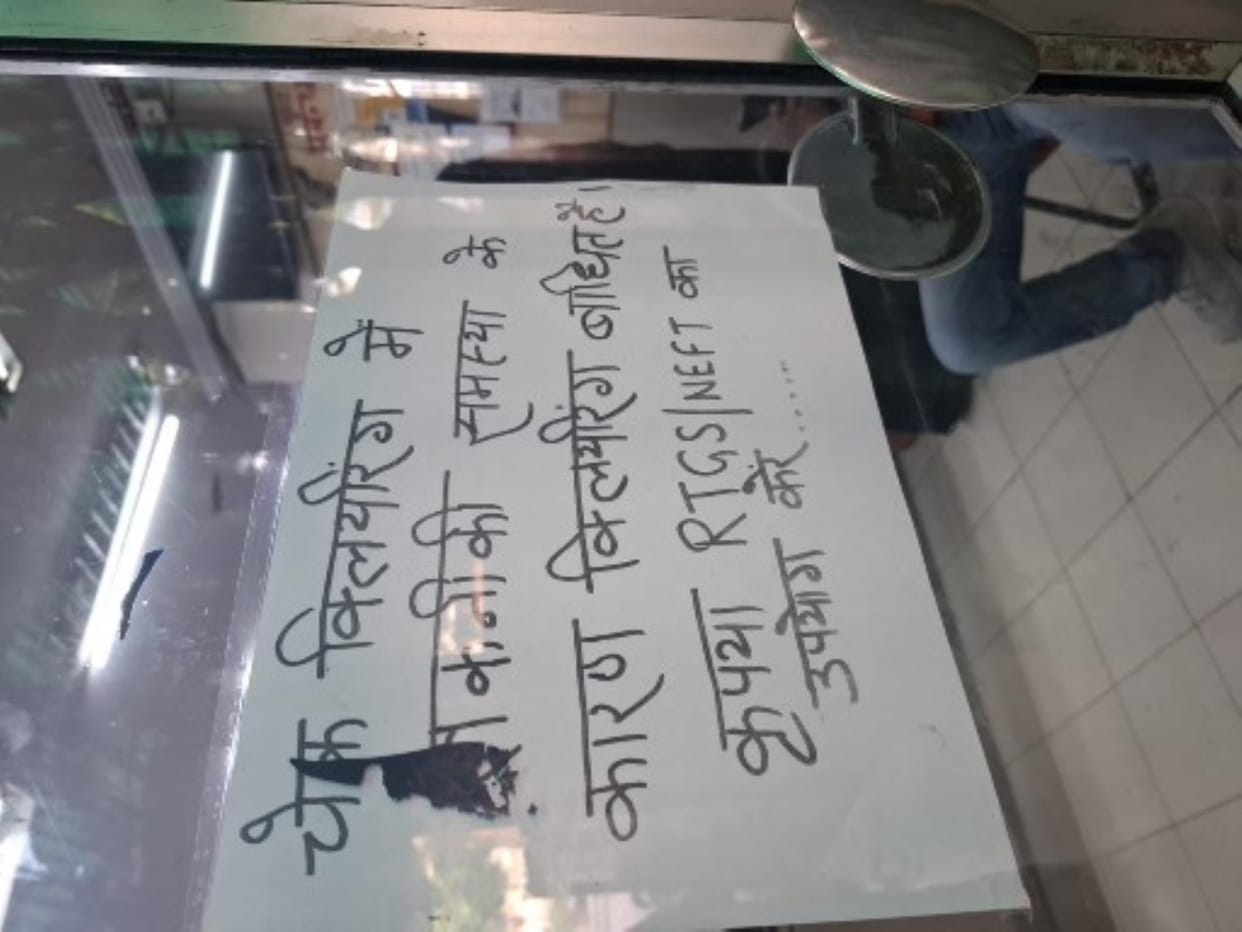 चेक क्लियरिंग में
तकनीकी समस्या के
कारण क्लियरिंग बाधित है।
कृपया RTGS/NEFT का
उपयोग करें......